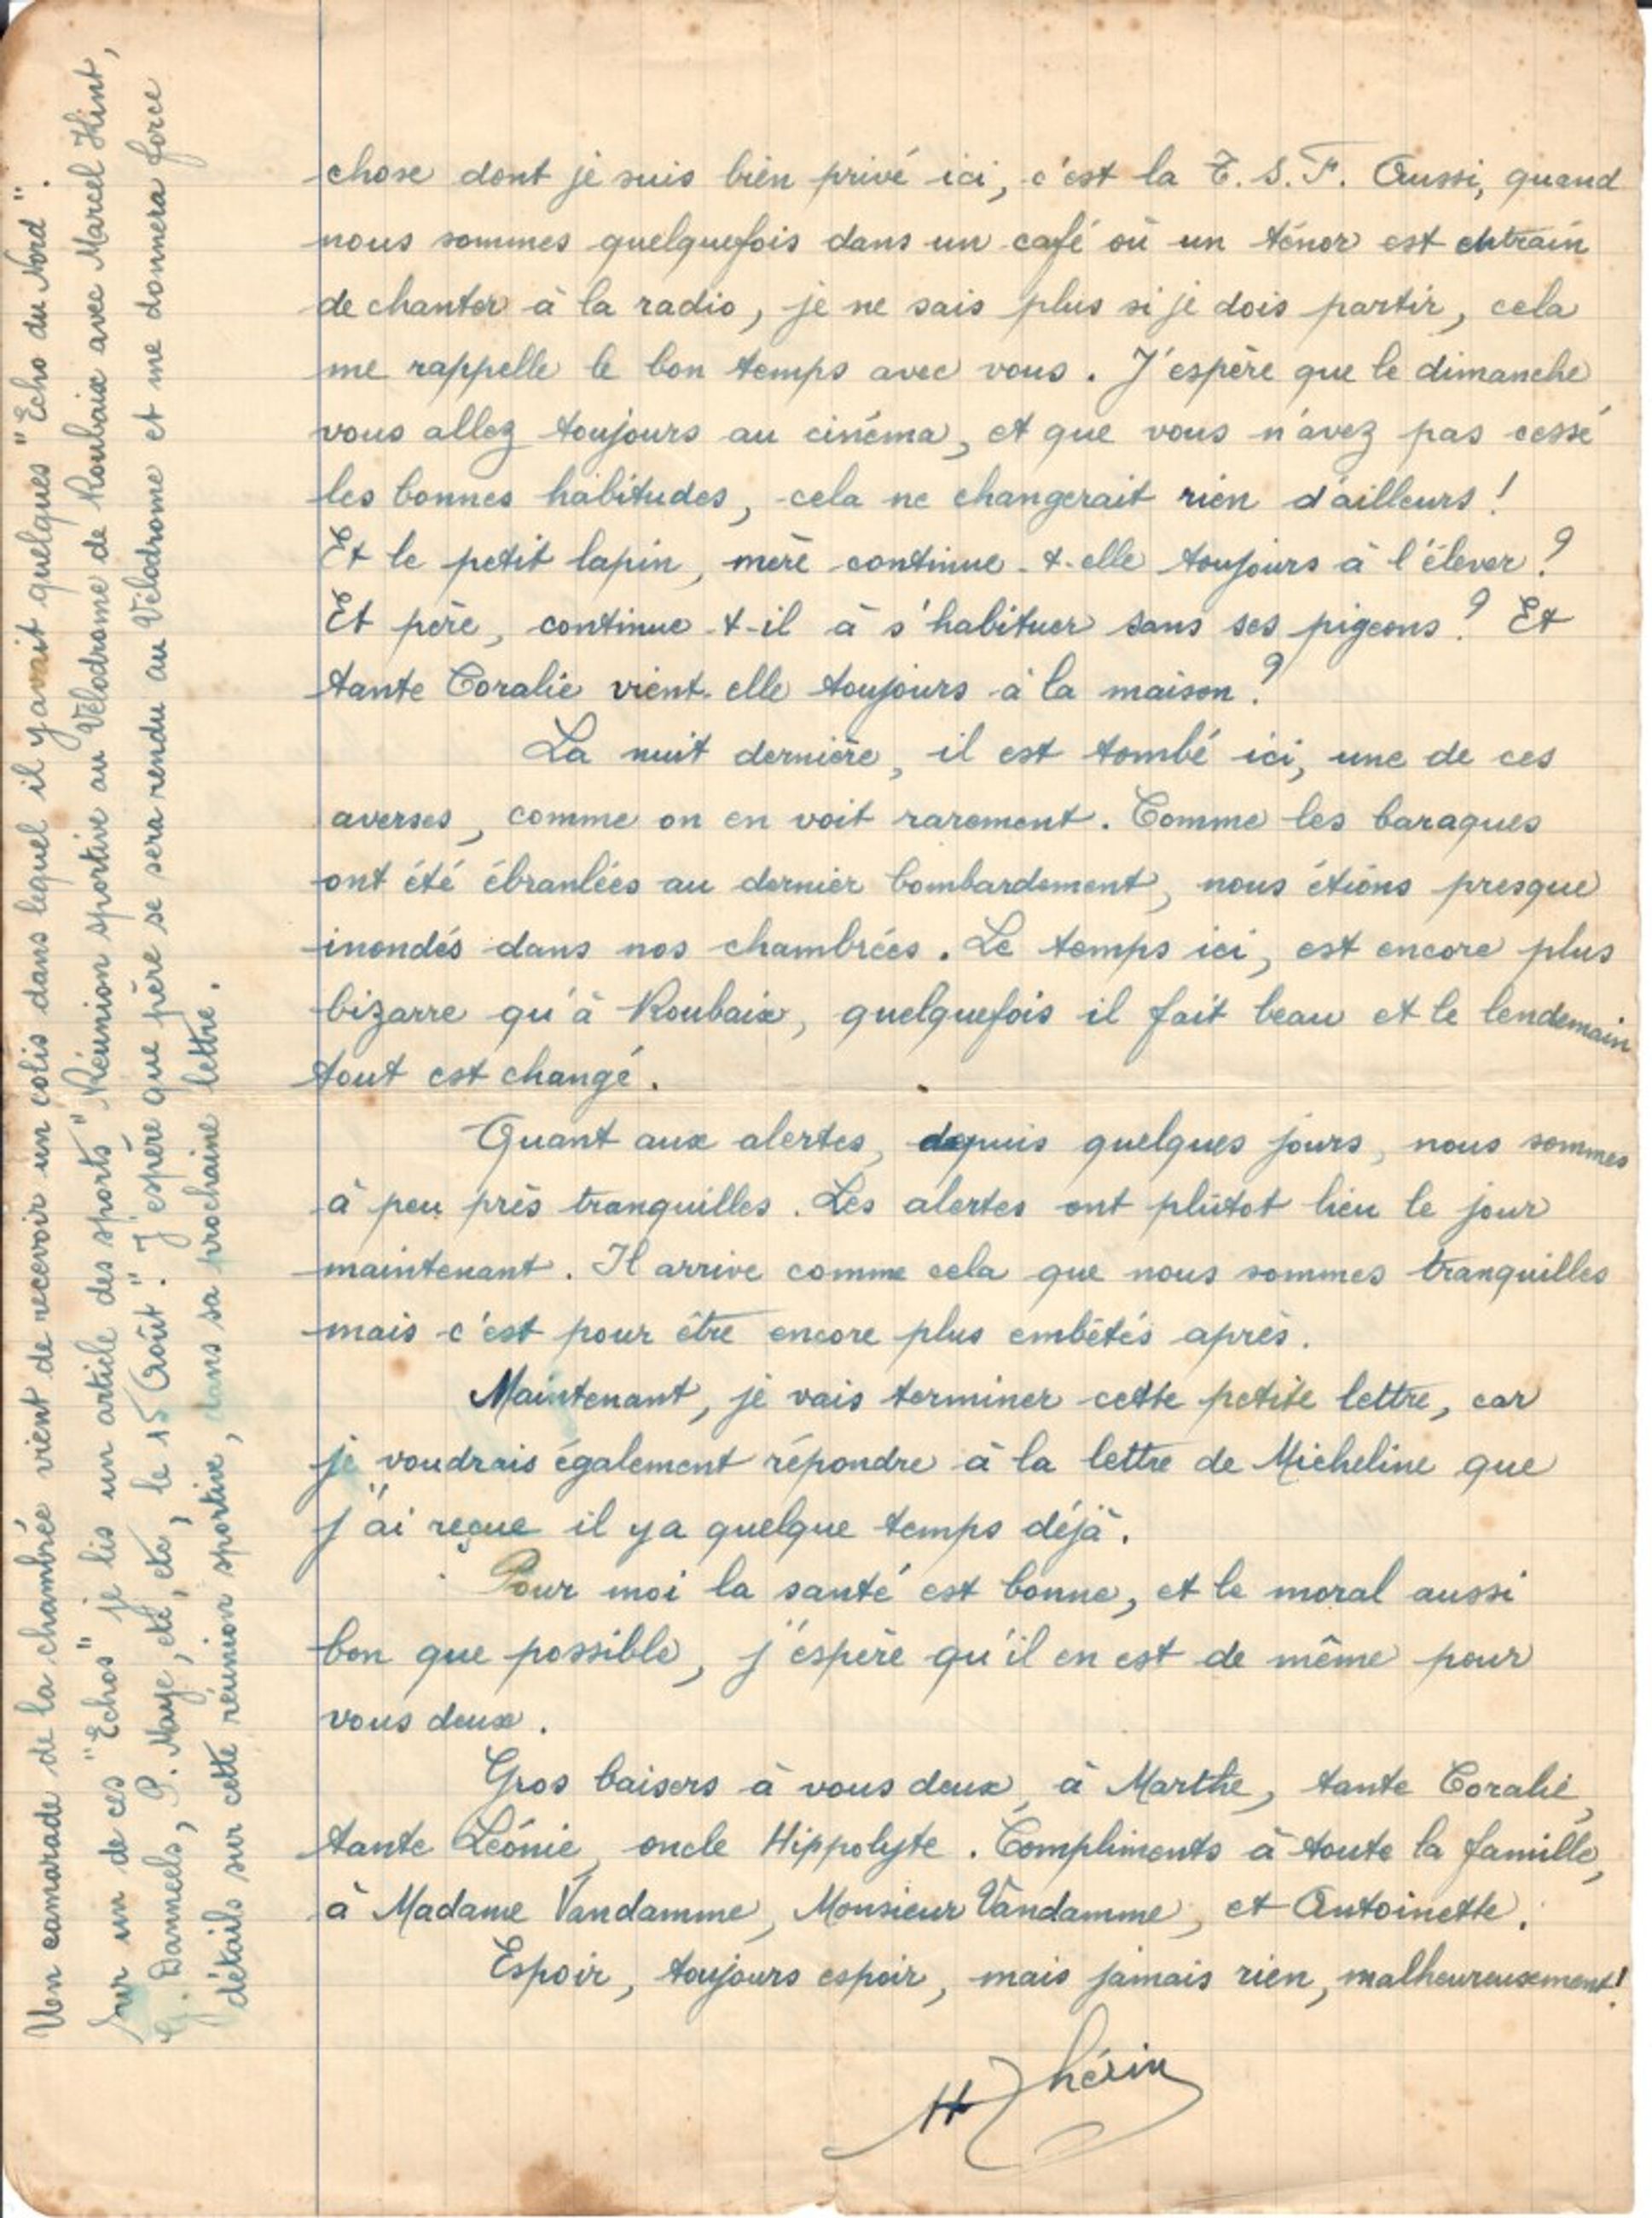 chose dont je suis bien privé ici, c'est la T.S.F. Aussi, quand
nous sommes quelquefois dans un café où un ténor est entrain
de chanter à la radio, je ne sais plus si je dois partir, cela
me rappelle le bon temps avec vous. J'espère que le dimanche
vous allez toujours au cinéma, et que vous n'avez pas cessé
les bonnes habitudes, cela ne changerait rien d'ailleurs !
Et le petit lapin, mère continue-t-elle toujours à l'élever ?
Et père, continue-t-il à s'habituer sans ses pigeons ? Et
tante Coralie vient-elle toujours à la maison ?
La nuit dernière, il est tombé ici, une de ces
averses, comme on en voit rarement. Comme les baraques
ont été ébranlées au dernier bombardement, nous étions presque
inondés dans nos chambrées. Le temps ici, est encore plus
bizarre qu'à Roubaix, quelquefois il fait beau et le lendemain
tout est changé.
Quant aux alertes, depuis quelques jours, nous sommes
à peu près tranquilles. Les alertes ont plûtot lieu le jour
maintenant. Il arrive comme cela que nous sommes tranquilles
mais c'est pour être encore plus embêtés après.
Maintenant, je vais terminer cette petite lettre, car
je voudrais également répondre à la lettre de Micheline que
j'ai reçue il y a quelque temps déjà.
Pour moi la santé est bonne, et le moral aussi
bon que possible, j'espère qu'il en est de même pour
vous deux.
Gros baisers à vous deux, à Marthe, tante Coralie,
tante Léonie, oncle Hippolyte. Compliments à toute la famille,
à Madame Vandamme, Monsieur Vandamme, et Antoinette.
Espoir, toujours espoir, mais jamais rien, malheureusement !
H Thérin
Un camarade de la chambrée vient de recevoir un colis dans lequel il y avait quelques "Echo du Nord".
Sur un de ces "Echos" je lis un article des sports "Réunion sportive au Vélodrome de Roubaix avec Marcel Kint,
G. Dannels, P. Maye, etc, etc, le 15 Août". J'espère que père se sera rendu au Vélodrome et me donnera force
détails sur cette réunion sportive, dans sa prochaine lettre.